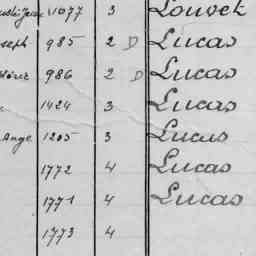 1077 3 Louvek
985 2 D Lucas
986 2 D Lucas
1424 3 Lucas
Ange 1205 3 Lucas
1772 4 Lucas
1771 4 Lucas
1773 4